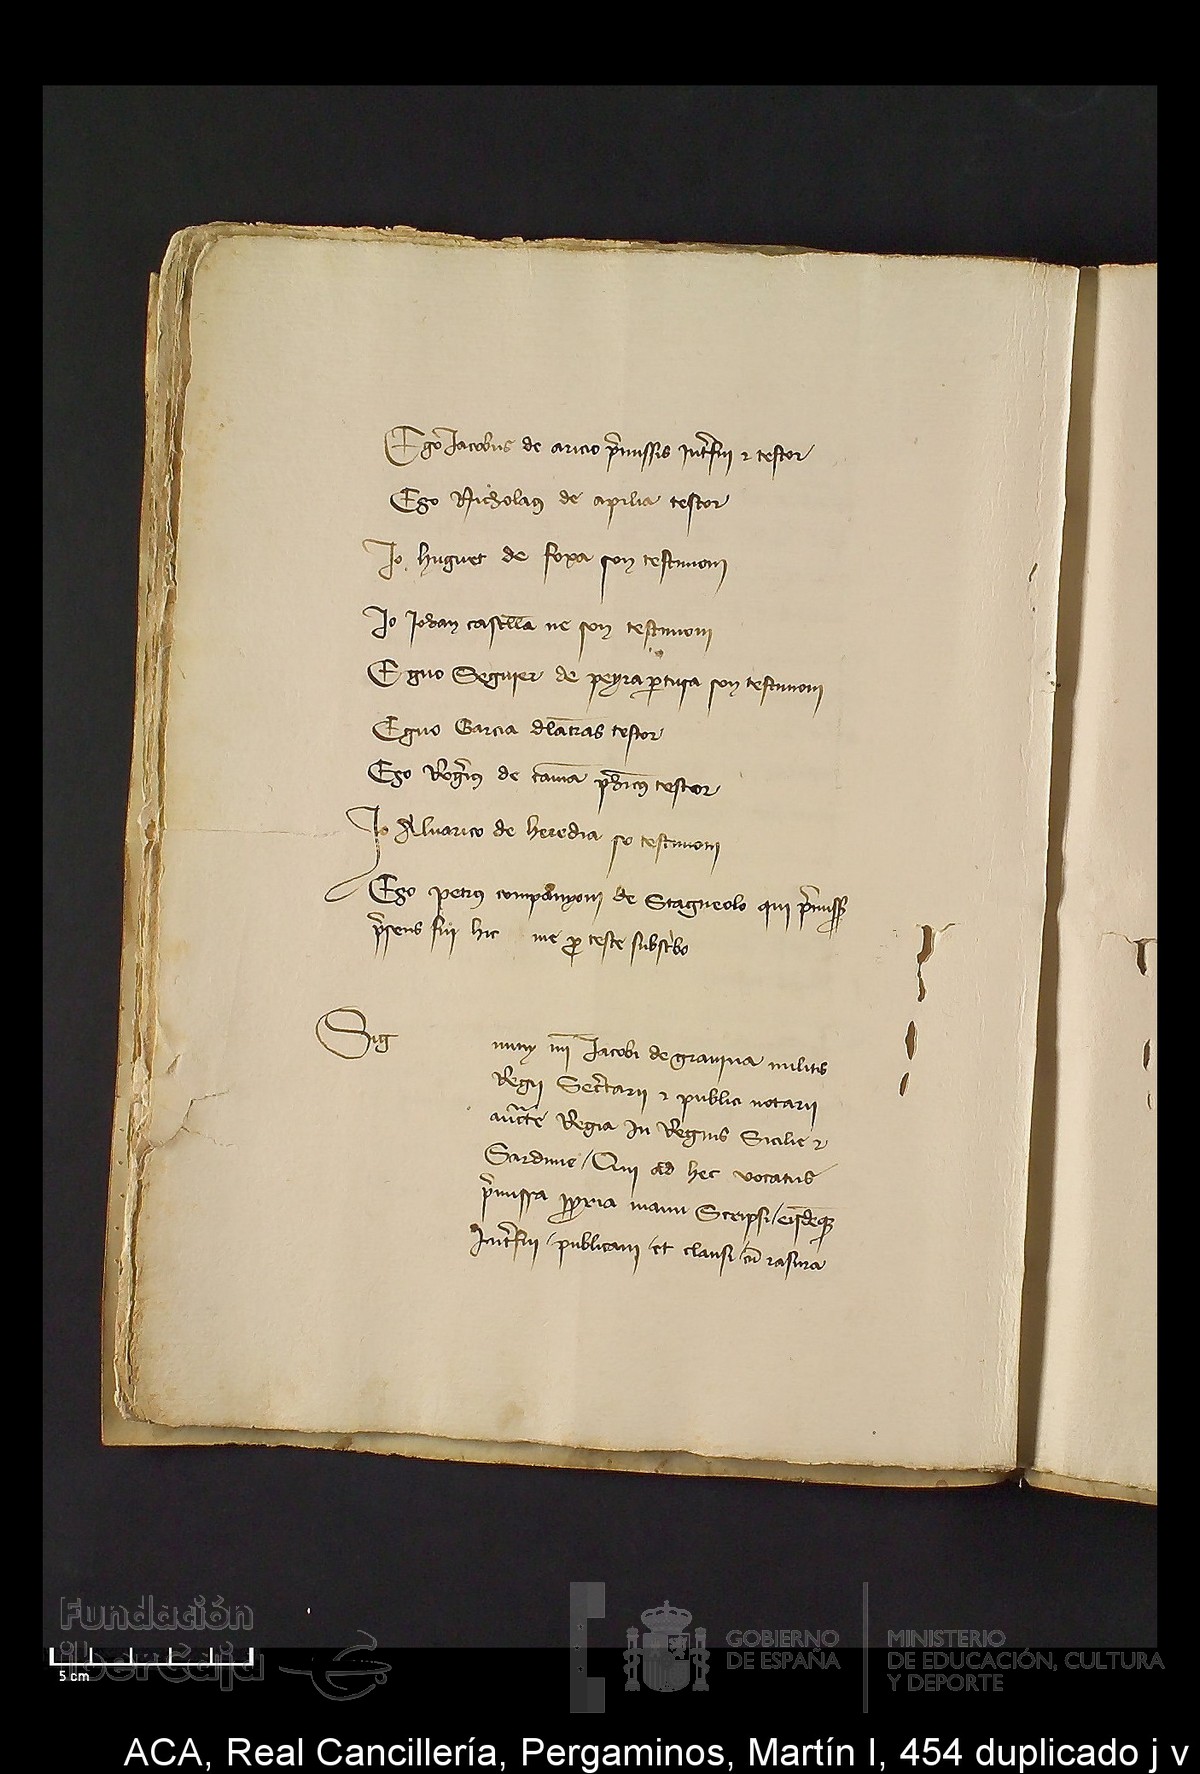 Ego Jacobus de aricio p̄missis int̄fui ⁊ testor
Ego Nicholaus de aprilia testor
Jo huguet de foxa son testimoni
Jo Johan castella ne son testimoni
Eguo Seguier de peyra ꝑtusa son testimoni
Eguo Garcia dlatras testor
Ego Roḡius de testor
Jo Aluarico de heredia so testimoni
Ego petrus companyoni de Stagneolo qui p̄miss
p̄sens fui hic me ꝓ teste subsc̄bo
Sig
num mi Jacobi de grauina militis
Regii Sec̄tarii ⁊ publici notarii
auct̄te Regia in Regnis Sicilie ⁊
Sardinie / Qui ad hec vocatus
p̄missa ꝓpria manu Scripsi / eisdeq
Int̄fui / publicaui / et clausi / cū rasura
Fundación
iberCaja
5 cm
GOBIERNO
DE ESPAÑA
MINISTERIO
DE EDUCACIÓN, CULTURA
Y DEPORTE
ACA, Real Cancillería, Pergaminos, Martín I, 454 duplicado j v